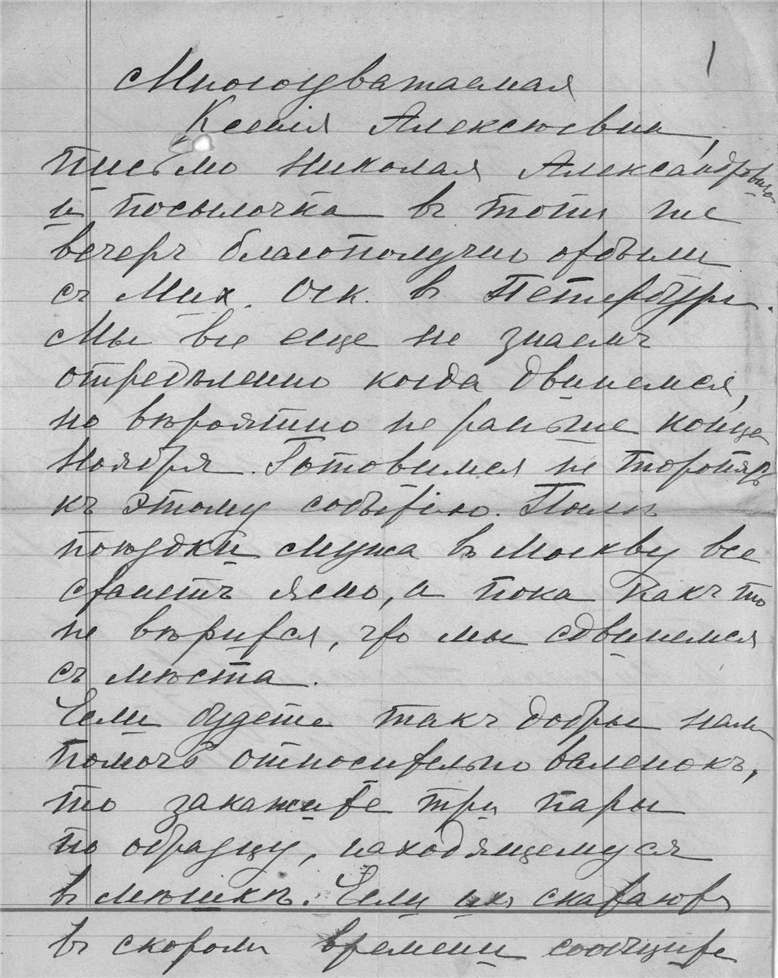 1
Многоуважаемая
Ксенія Алексѣевна,
письмо Николая Александровича
и посылочка в тотъ же
вечеръ благополучно отбыли
съ Мих. Оск. в Петербургъ.
Мы все еще не знаемъ
определенно когда двинемся,
но вѣроятно не раньше конца
Ноября. Готовимся не торопясь
къ этому событію. Послѣ
поездки мужа въ Москву все
станетъ ясно, а пока какъ то
не вѣрится, что мы сдвинемся
съ мѣста.
Если будете такъ добры нам
помочь относительно валенокъ,
то закажите три пары
по образцу, находящемуся
в мѣшкѣ. Если их скатаютъ
в скором времени сообщите